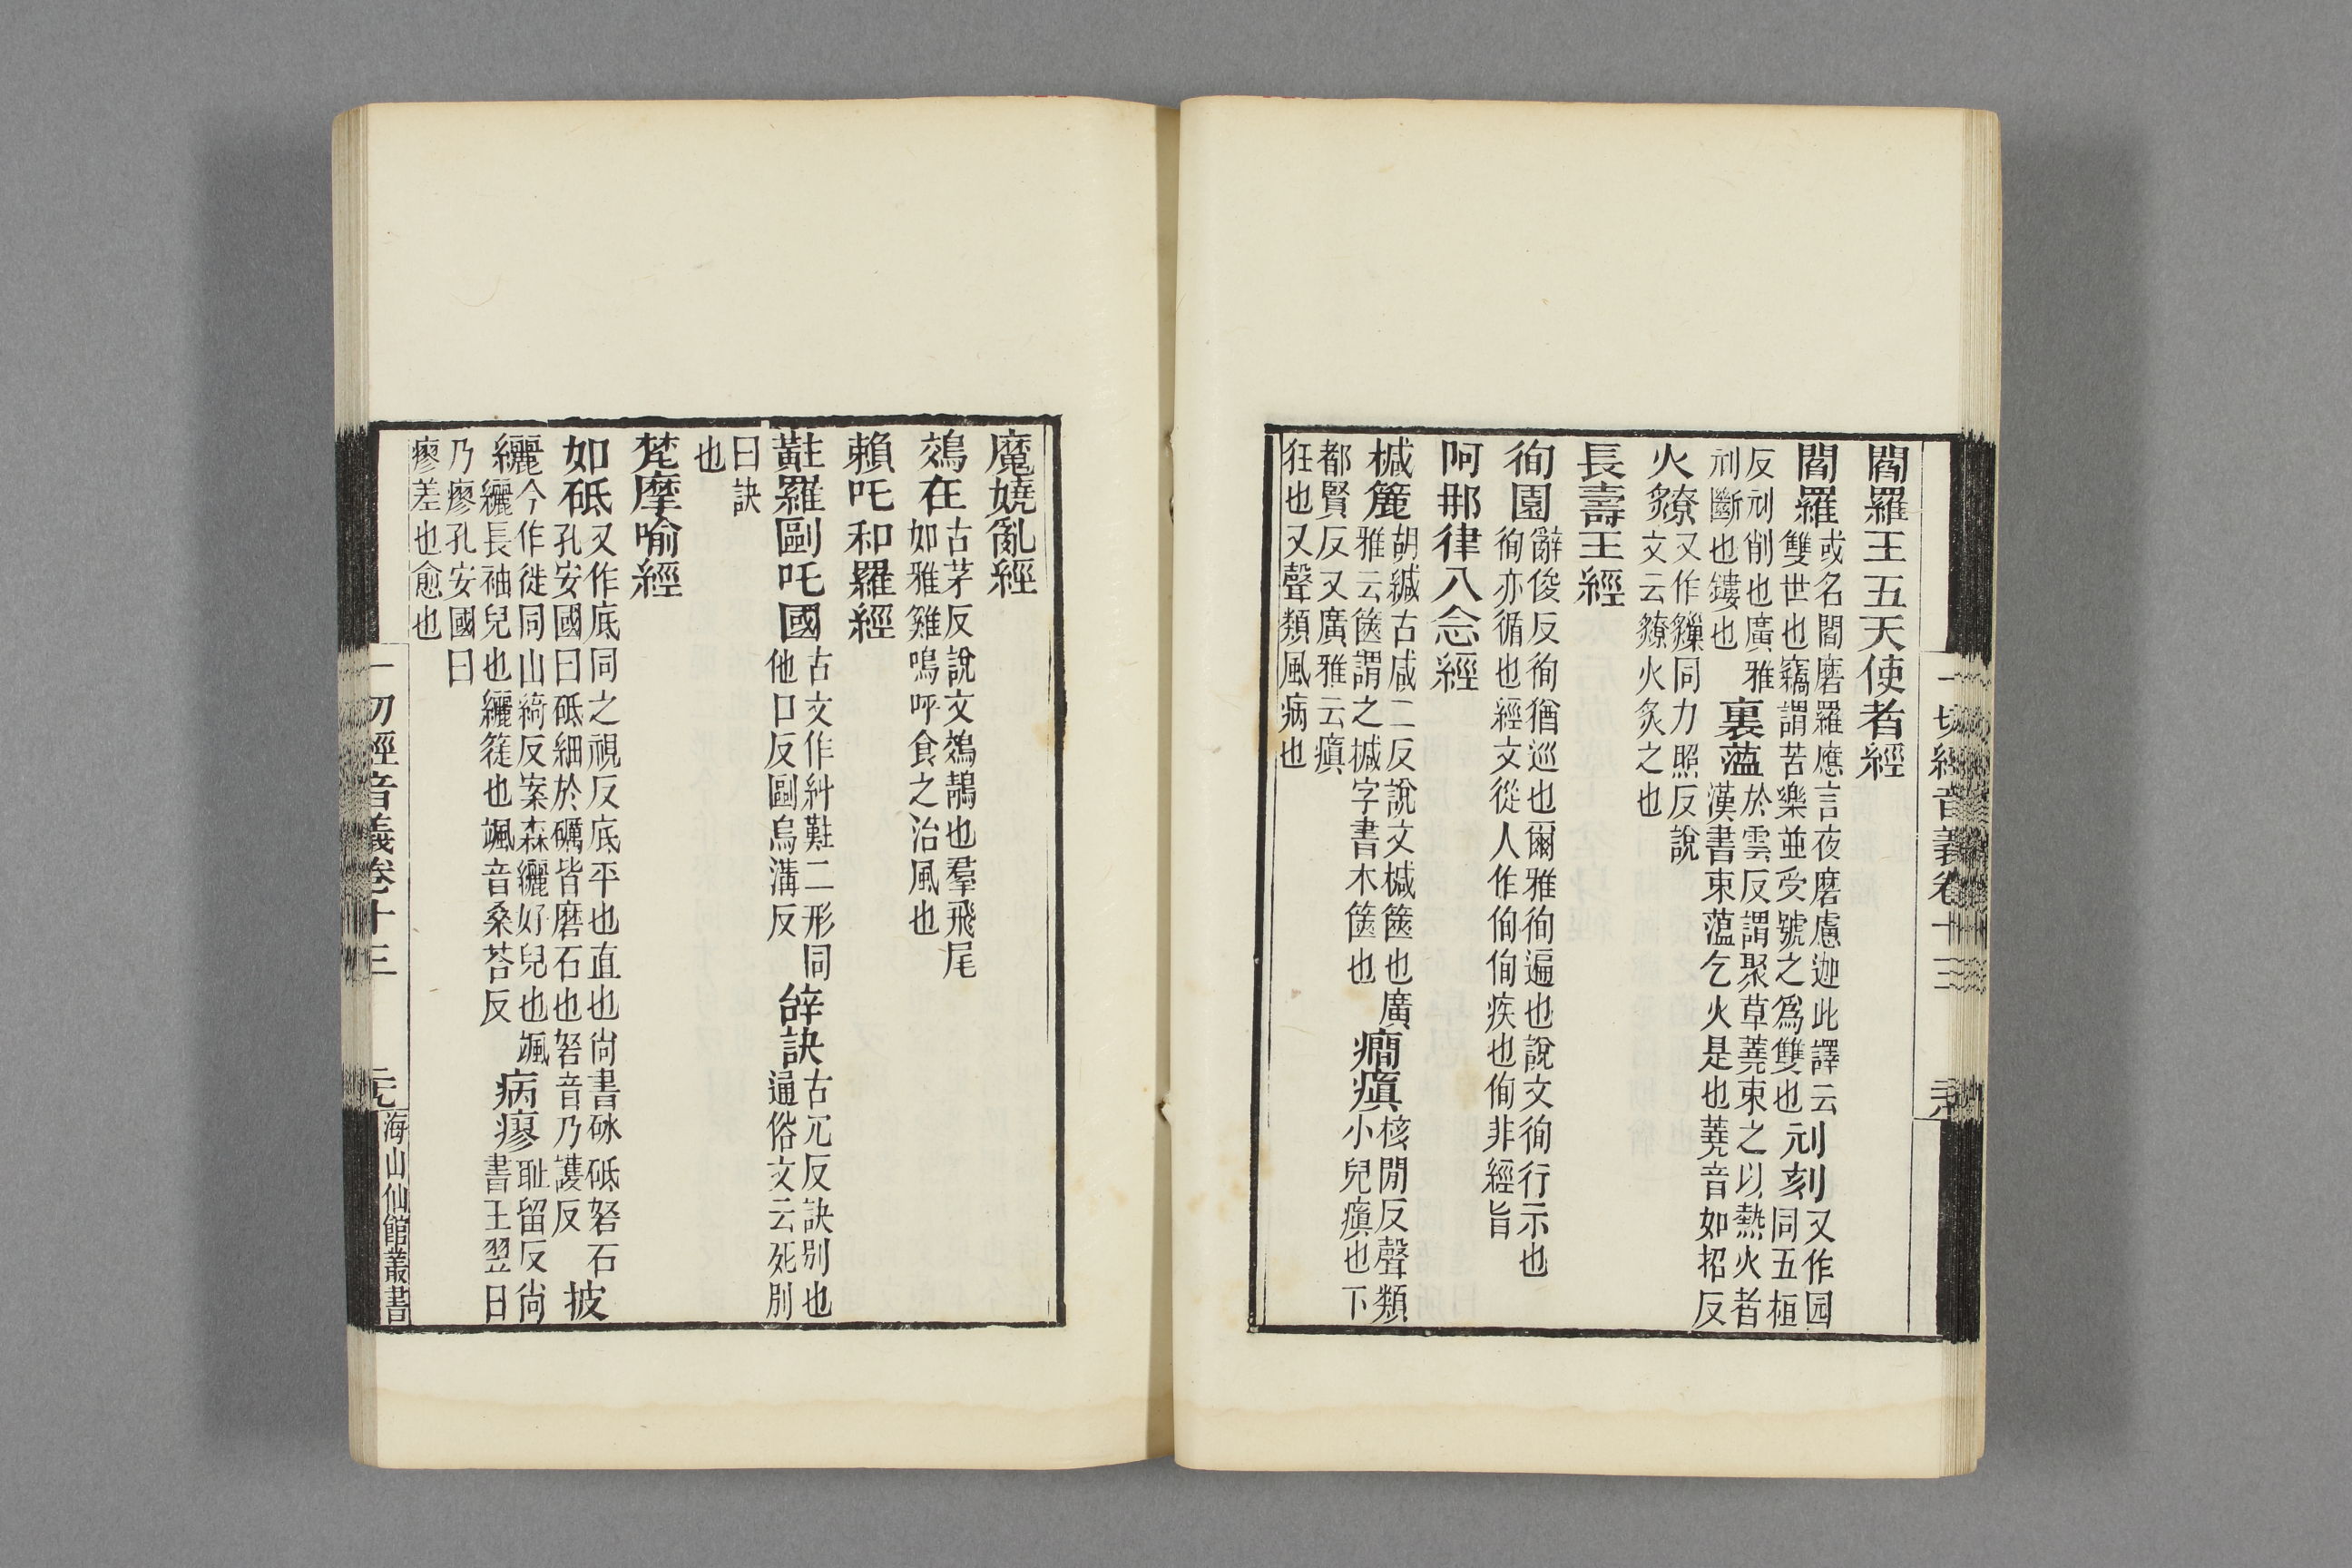 閻羅王五天使者經
閻羅或名閻磨羅應言夜磨慮迦此譯云
雙世也竊謂苦樂並受號之爲雙也刓刻又作园
同五桓
反刓削也廣雅
刓斷也鏤也裏薀於雲反謂聚草蕘束之以熱火者
漢書束薀乞火是也蕘音如招反
火燎又作𤐫同力照反說
文云燎火炙之也
長壽王經
徇園辭俊反徇猶巡也爾雅徇遍也說文徇行示也
徇亦循也經文從人作侚侚疾也侚非經旨
阿那律八念經
椷簏胡緘古咸二反說文椷篋也廣
雅云篋謂之椷字書木篋也癎瘨核閒反聲類
小兒瘨也下
都賢反又廣雅云瘨
狂也又聲類風病也
一切經音義卷十三
魔嬈亂經
鵁在古茅反說文鵁鶄也羣飛尾
如雅雞鳴呼食之治風也
賴吒和羅經
黈羅剾吒國古文作䊵䵻二形同
他口反剾烏溝反辞訣古冗反訣別也
通俗文云死別
曰訣
也
梵摩喻經
如砥又作底同之視反底平也直也尙書砅砥砮石
孔安國曰砥細於礪皆磨石也砮音乃護反披
纚今作徙同山綺反案森纚好皃也颯
纚長袖皃也纚簁也颯音桑荅反病瘳耻留反尙
書王翌日
乃瘳孔安國曰
瘳差也愈也
一切經音義卷十三
元
海山仙館叢書